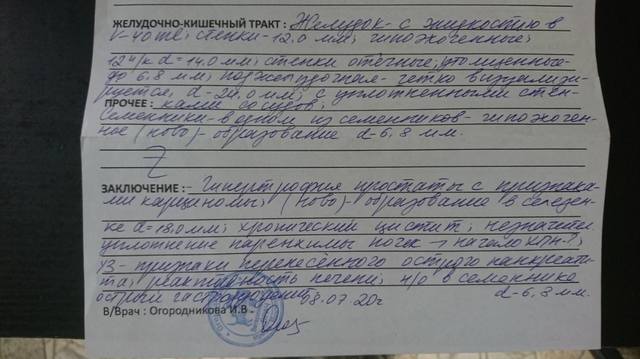 ЖЕЛУДОЧНО-КИШЕЧНЫЙ ТРАКТ: Желудок - с жидкостью в
V-40 ml; стенки - 12,0 мм; гипоэхогенные;
12п/к d=14,0 мм; стенки отёчные, утолщенно-
до 6,8 мм; поджелудочная - четко визуализи-
руется, d-24,0 мм; с уплотненными стен-
ПРОЧЕЕ: ками сосудов.
Семенники - в одном из семенников - гипоэхоген-
ное (ново)-образование d-6,8 мм.
ЗАКЛЮЧЕНИЕ: - Гипертрофия простаты с признака-
ми карциномы; (ново)-образование в селезен-
ке d=18,0 мм; хронический цистит; незначител.
уплотнение паренхимы почек → начало ХПН?;
УЗ-признаки перенесённого острого панкреати-
та; реактивность печени; н/о в семеннике
острый гастродуоденит d-6,8 мм.
08.07.20г
В/Врач : Огородникова И.В.